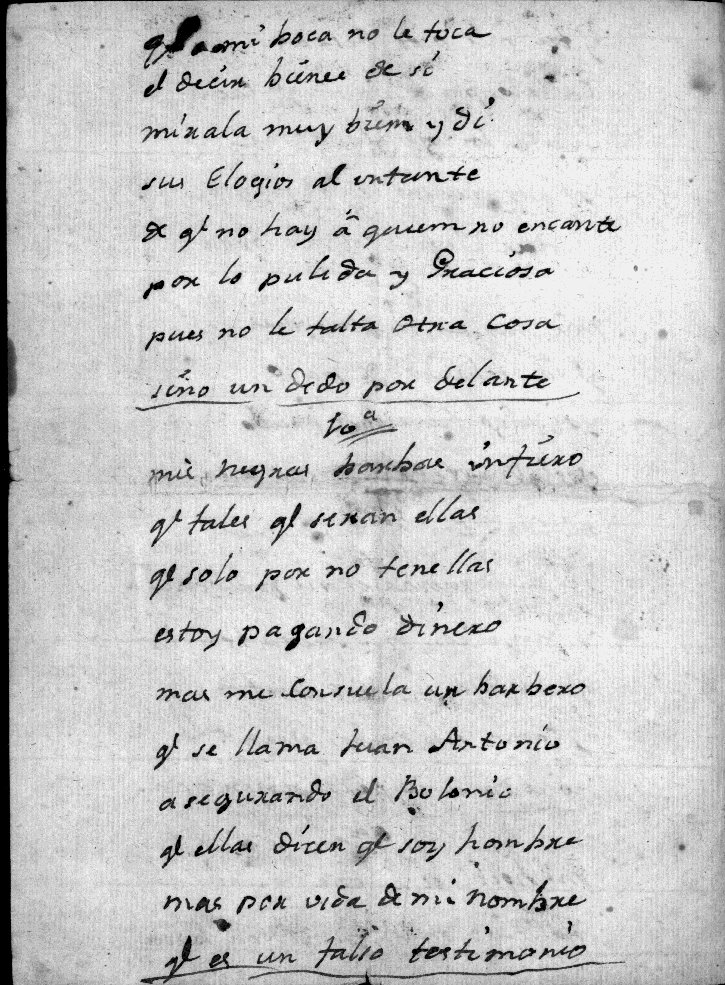 q.e a mi boca no le toca
el decir bienes de si
mirala muy bien y di
sus Elogios al instante
de q.e no hay á quien no encante
por lo pulida y Graciosa
pues no le falta otra cosa
sino un dedo por delante
10.a
mis negras barbas infiero
q.e tales q.e seran ellas
q.e solo por no tenellas
estoy pagando dinero
mas me consuela un barbero
q.e se llama Juan Antonio
asegurando el Bolonio
q.e ellas dicen q.e soy hombre
mas por vida de mi nombre
q.e es un falso testimonio